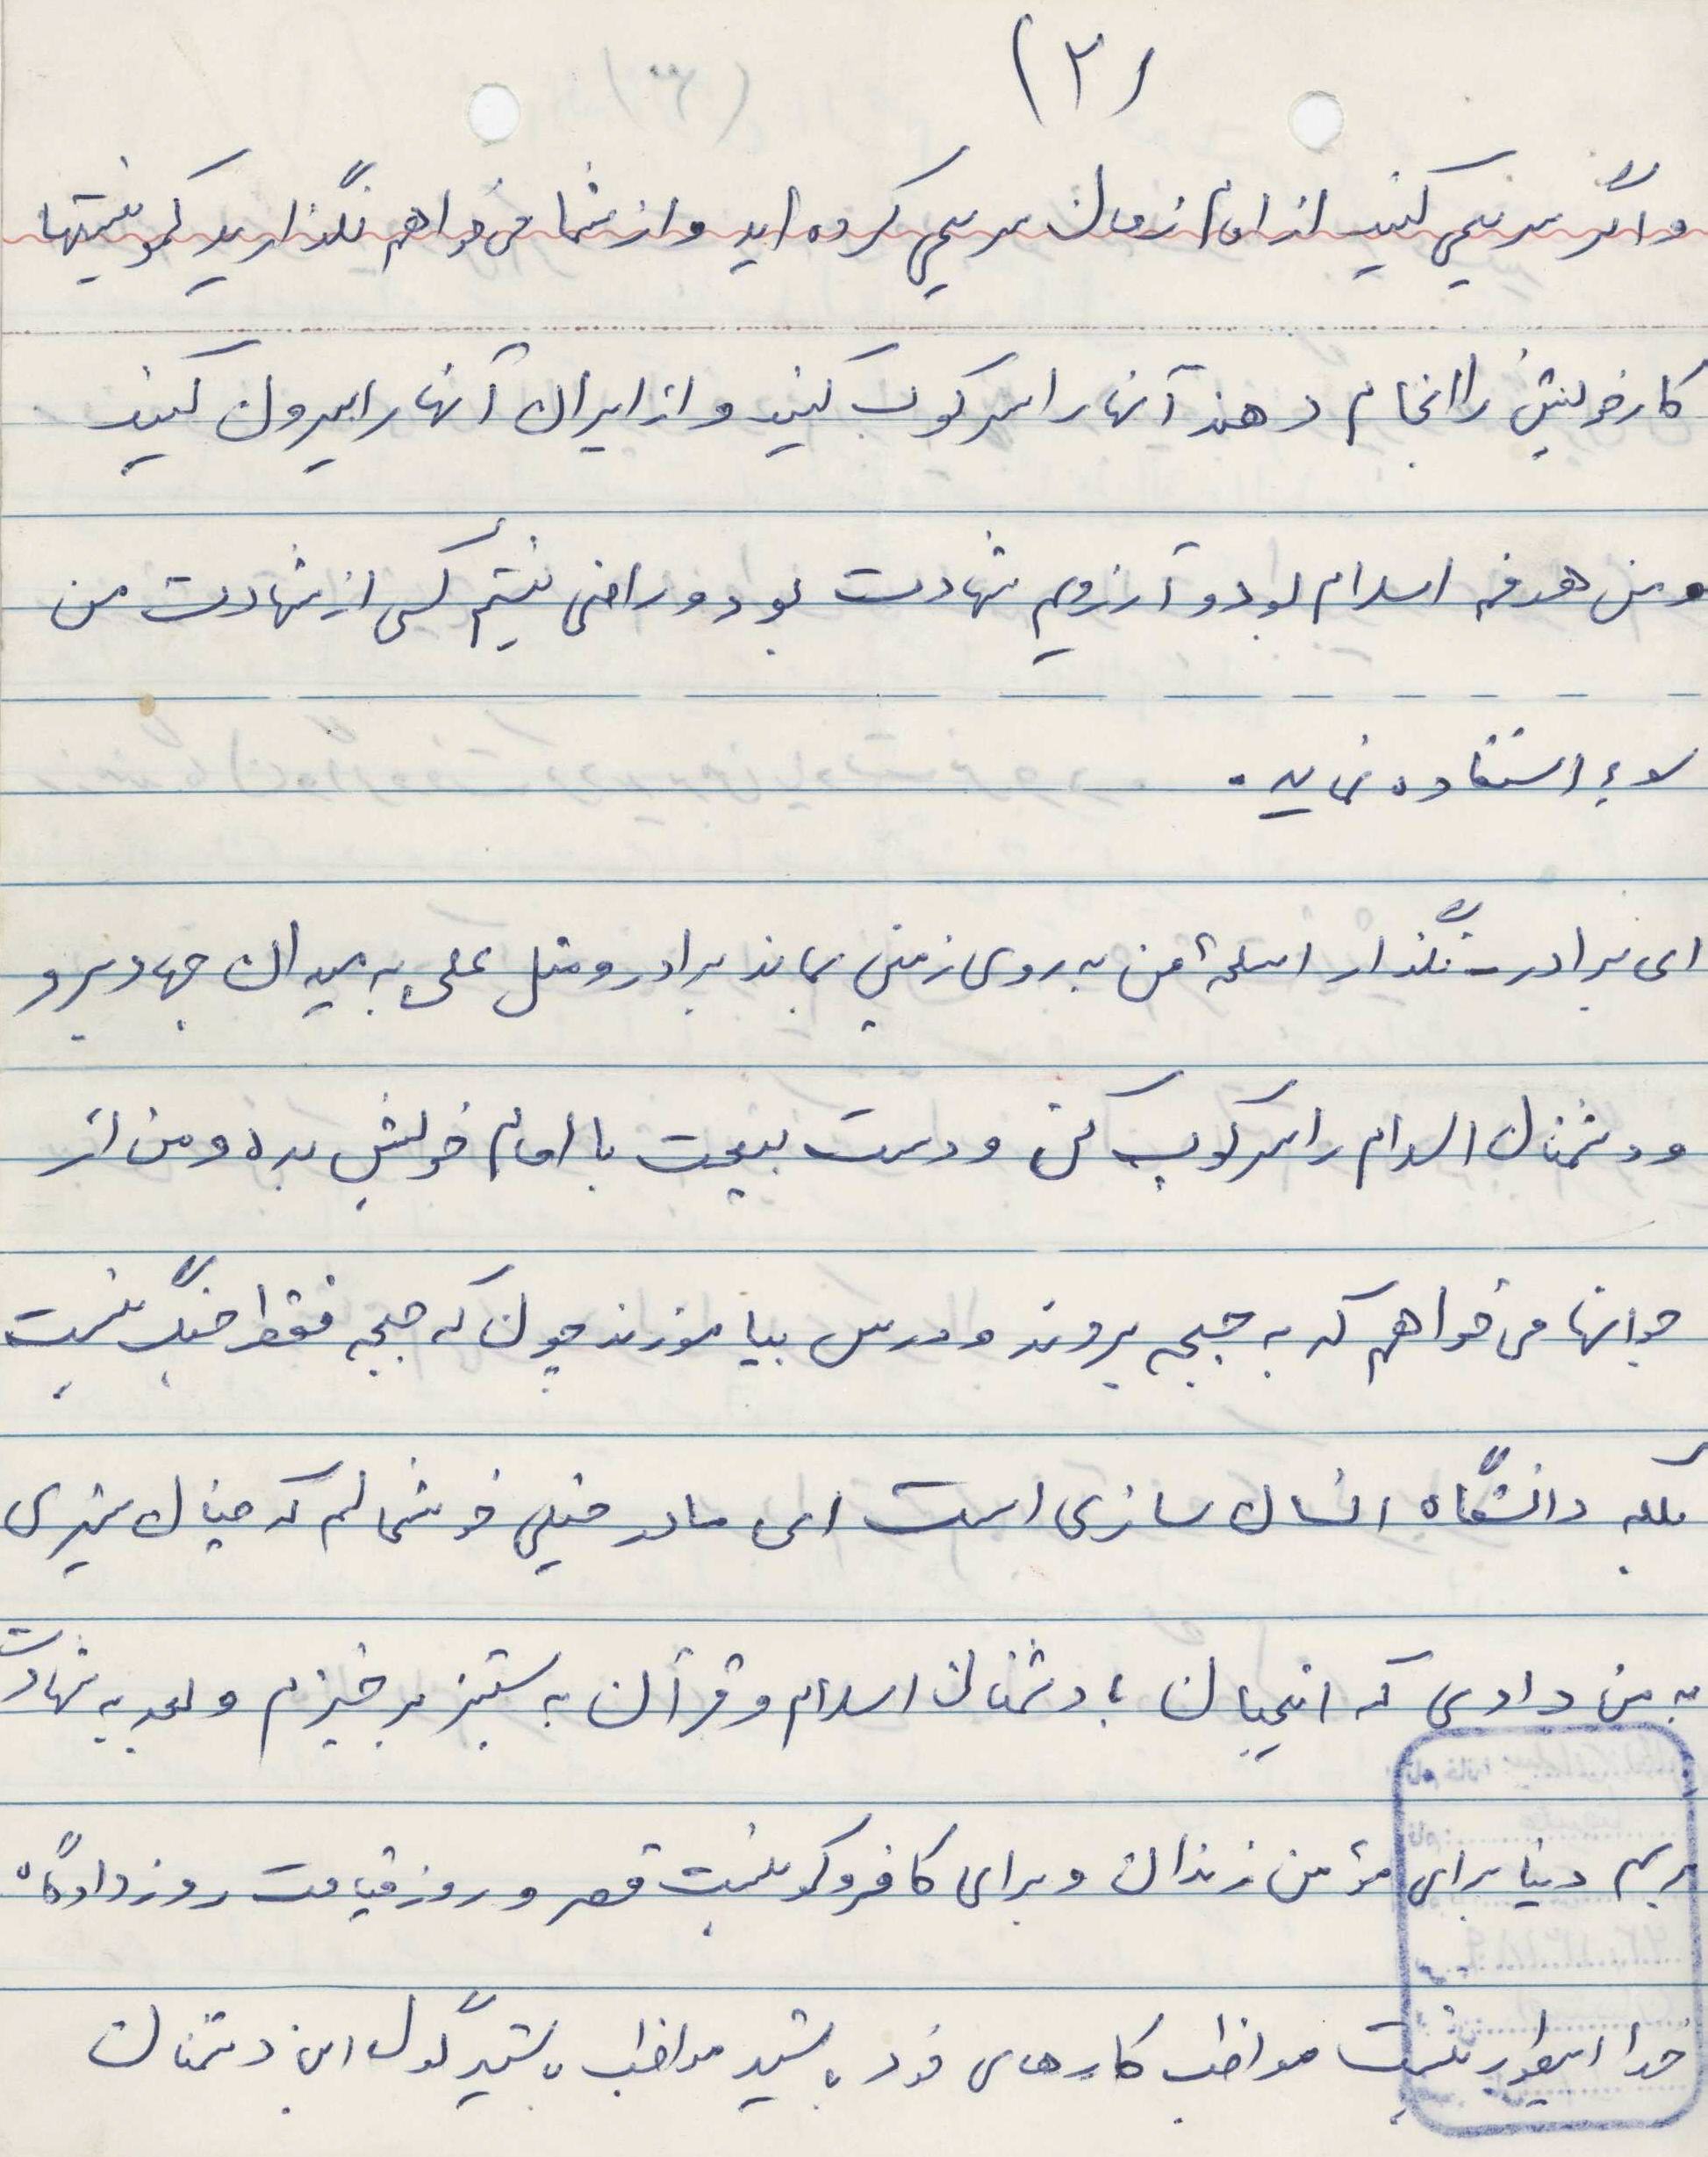 (۲)
و اگر سرپیچی کنید از امام زمان سرپیچی کرده اید و از شما می خواهم نگذارید کمونیستها
کار خویش را انجام دهند آنها را سرکوب کنید و از ایران آنها را بیرون کنید
و من هدفم اسلام بود و آرزویم شهادت بود و راضی نیستم کسی از شهادت من
سوء استفاده نماید.
ای برادر نگذار اسلحهٔ من به روی زمین بماند برادر و مثل علی به میدان جهاد برو
و دشمنان اسلام را سرکوب کن و دست بیعت با امام خویش بده و من از
جوانها می خواهم که به جبهه بروند و درس بیاموزند چون که جبهه فقط جنگ نیست
بلکه دانشگاه انسان سازی است ای مادر خیلی خوشحالم که چنان شیری
به من دادی که اینچنان با دشمنان اسلام و قرآن به ستیز برخیزم و بعد به شهادت
برسم دنیا برای مؤمن زندان و برای کافر و کمونیست قصر و روز قیامت روز دادگاه
خدا اینطور نیست مواظب کارهای خود باشید مواظب باشید گول این دشمنان